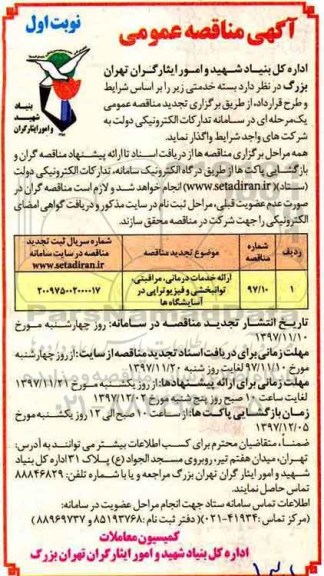 آگهی مناقصه عمومی
نوبت اول
بنیاد
شهید
و امور ایثارگران
اداره کل بنیاد شهید و امور ایثارگران تهران
بزرگ در نظر دارد بسته خدمتی زیر را بر اساس شرایط
و طرح قرارداد، از طریق برگزاری تجدید مناقصه عمومی
یک مرحله ای در سامانه تدارکات الکترونیکی دولت به
شرکت های واجد شرایط واگذار نماید.
همه مراحل برگزاری مناقصه ها از دریافت اسناد تا ارائه پیشنهاد مناقصه گران و
بازگشایی پاکت ها از طریق درگاه الکترونیک سامانه، تدارکات الکترونیکی دولت
(ستاد)(www.setadiran.ir) انجام خواهد شد و لازم است مناقصه گران در
صورت عدم عضویت قبلی، مراحل ثبت نام در سایت مذکور و دریافت گواهی امضای
الکترونیکی را جهت شرکت در مناقصه محقق سازند.
ردیف
شماره مناقصه
موضوع تجدید مناقصه
شماره سریال ثبت تجدید
مناقصه در سایت سامانه
www.setadiran.ir
۱
۹۷/۱۰
ارائه خدمات درمانی، مراقبتی،
توانبخشی و فیزیوتراپی در
آسایشگاه ها
۲۰۰۹۷۵۰۰۲۰۰۰۰۱۷
تاریخ انتشار تجدید مناقصه در سامانه: روز چهارشنبه مورخ
۱۳۹۷/۱۱/۱۰
مهلت زمانی برای دریافت اسناد تجدید مناقصه از سایت: از روز چهارشنبه
مورخ ۹۷/۱۱/۱۰ لغایت روز شنبه ۱۳۹۷/۱۱/۲۰
مهلت زمانی برای ارائه پیشنهادها: از روز یکشنبه مورخ ۱۳۹۷/۱۱/۲۱
لغایت ساعت ۱۰ صبح روز پنج شنبه مورخ ۱۳۹۷/۱۲/۰۲
زمان بازگشایی پاکت ها: از ساعت ۱۰ صبح الی ۱۳ روز یکشنبه مورخ
۱۳۹۷/۱۲/۰۵
ضمناً، متقاضیان محترم برای کسب اطلاعات بیشتر می توانند به آدرس:
تهران، میدان هفتم تیر، روبروی مسجد الجواد (ع) پلاک ۳۱ اداره کل بنیاد
شهید و امور ایثارگران تهران بزرگ مراجعه و یا با شماره تلفن: ۸۸۸۴۶۸۲۹
تماس حاصل نمایند.
اطلاعات تماس سامانه ستاد جهت انجام مراحل عضویت در سامانه:
(مرکز تماس: ۴۱۹۳۴-۰۲۱)( دفتر ثبت نام: ۸۵۱۹۳۷۶۸ و ۸۸۹۶۹۷۳۷)
کمیسیون معاملات
اداره کل بنیاد شهید و امور ایثارگران تهران بزرگ